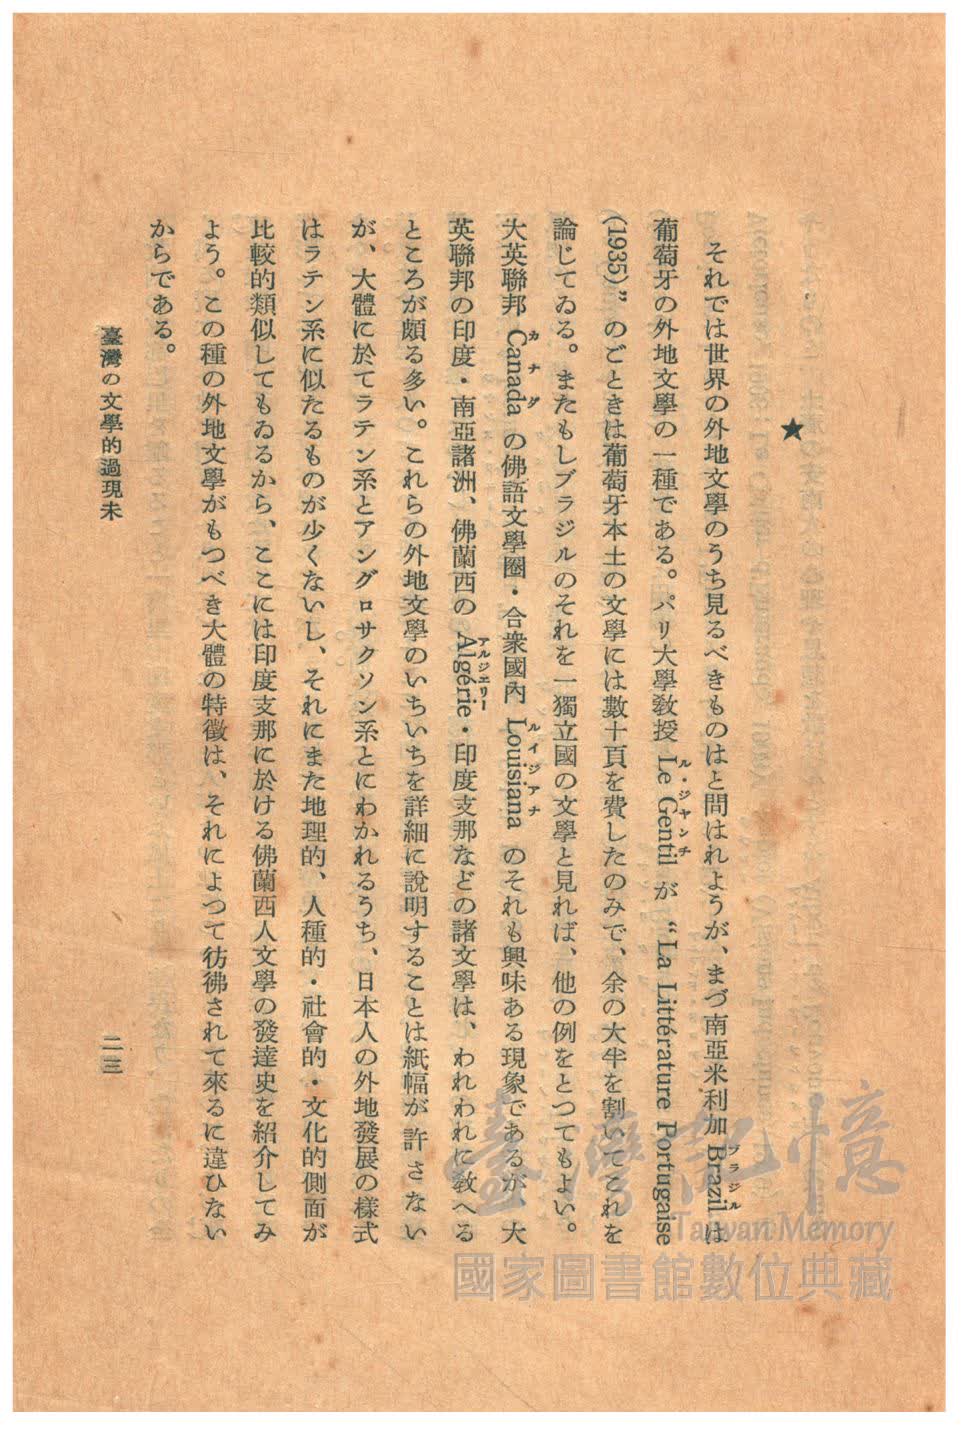 ★
それでは世界の外地文學のうち見るべきものはと問はれようが、まづ南亞米利加 Brazil は
ブラジル
葡萄牙の外地文學の一種である。パリ大學教授 Le Gentil が “La Littérature Portugaise
ル・ジャンチ
(1935)” のごときは葡萄牙本土の文學には數十頁を費したのみで、余の大半を割いてこれを
論じてゐる。またもしブラジルのそれを一獨立國の文學と見れば、他の例をとつてもよい。
大英聯邦 Canada の佛語文學圈・合衆國內 Louisiana のそれも興味ある現象であるが、大
カナダ
ルイジアナ
英聯邦の印度・南亞諸洲、佛蘭西の Algérie・印度支那などの諸文學は、われわれに敎へる
ところが頗る多い。これらの外地文學のいちいちを詳細に說明することは紙幅が許さない
が、大體に於てラテン系とアングロサクソン系とにわかれるうち、日本人の外地發展の樣式
はラテン系に似たるものが少くないし、それにまた地理的、人種的・社會的・文化的側面が
比較的類似してもゐるから、ここには印度支那に於ける佛蘭西人文學の發達史を紹介してみ
よう。この種の外地文學がもつべき大體の特徵は、それによつて彷彿されて來るに違ひない
からである。
臺灣の文學的過現未
二三
臺灣記憶
Taiwan Memory
國家圖書館數位典藏